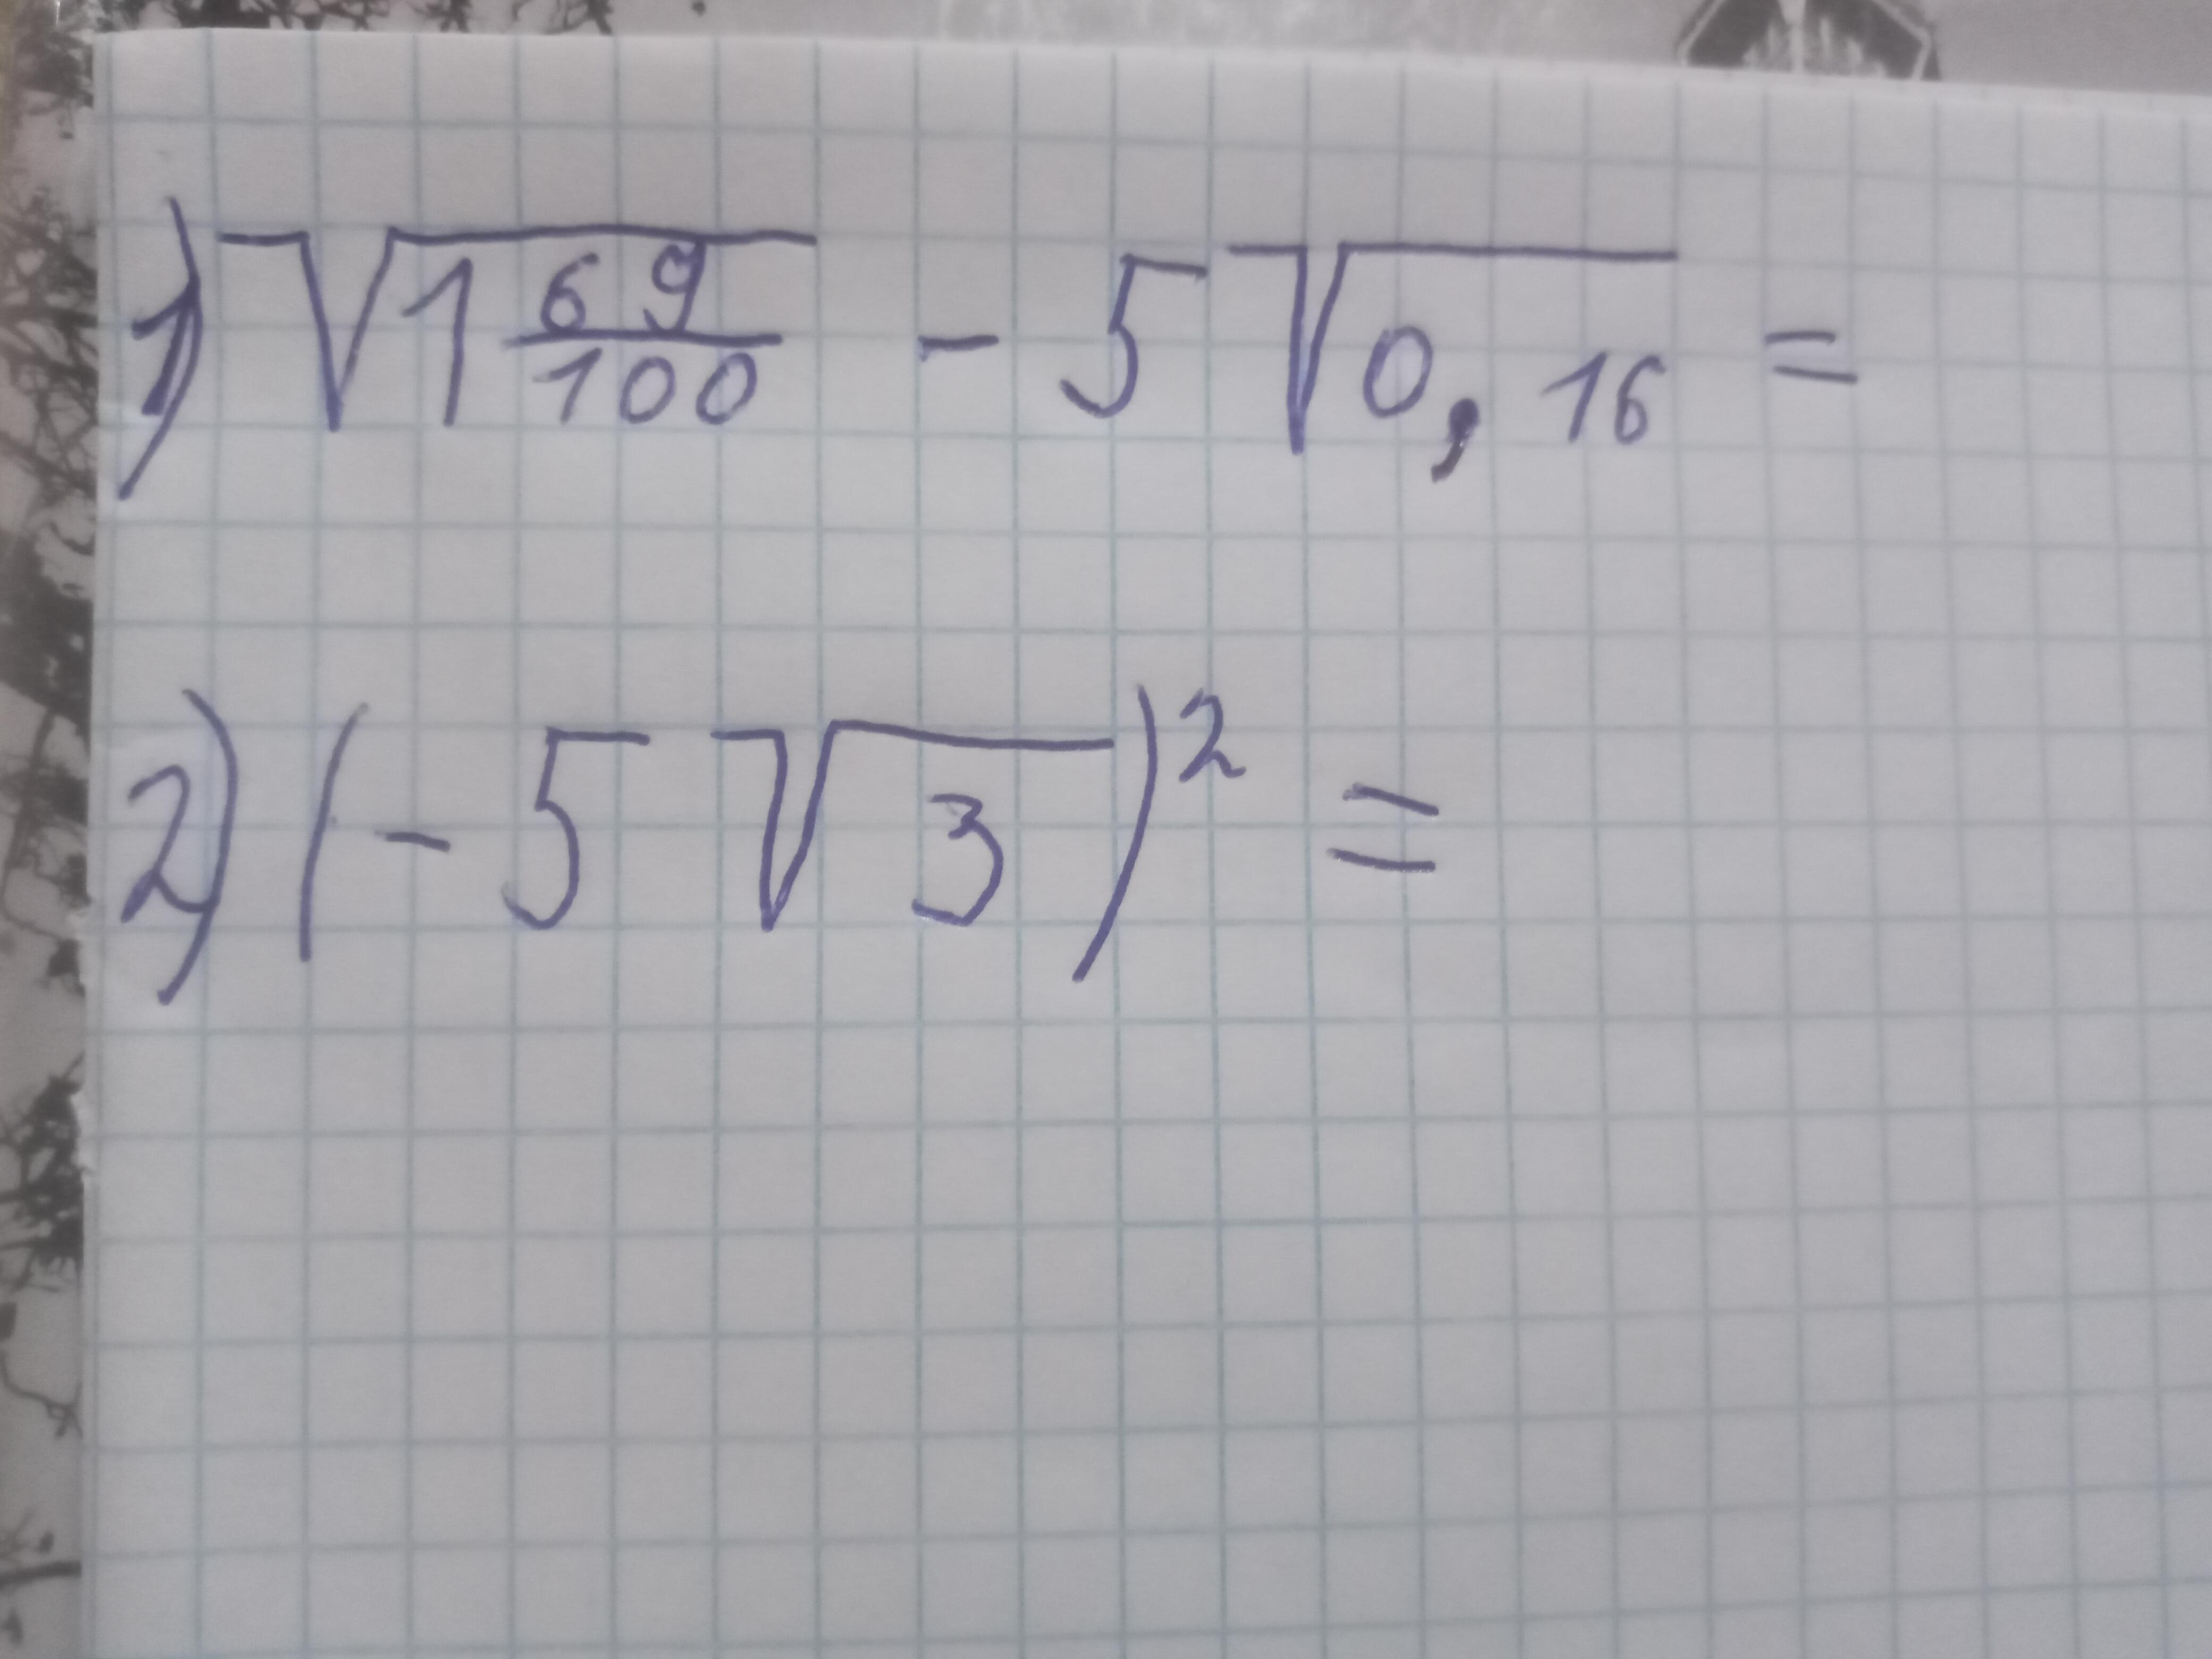 1) √(1 69/100) - 5√(0,16) =
2) (-5√3)² =